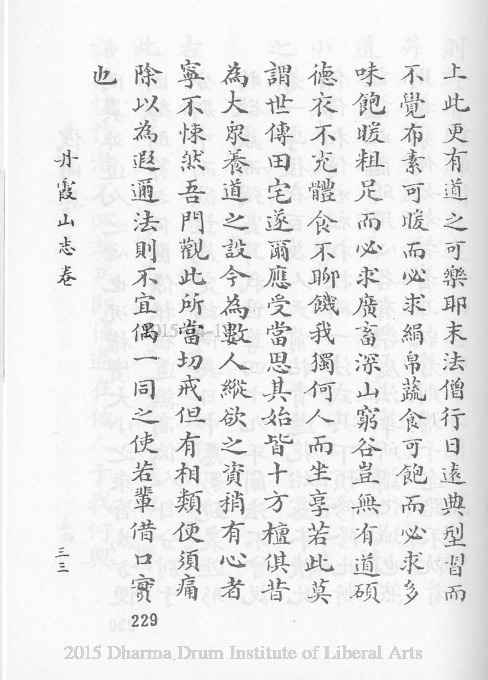 上此更有道之可樂耶末法僧行日遠典型習而
不覺布素可暖而必求絹帛蔬食可飽而必求多
味飽暖粗足而必求廣畜深山窮谷豈無有道碩
德衣不充體食不聊饑我獨何人而坐享若此莫
謂世傳田宅遂爾應受當思其始皆十方檀俱昔
為大眾養道之設今為數人縱欲之資稍有心者
寧不悚然吾門觀此所當切戒但有相類便須痛
除以為遐邇法則不宜偶一同之使若輩借口實
也
丹霞山志卷
三三
229
2015 Dharma Drum Institute of Liberal Arts